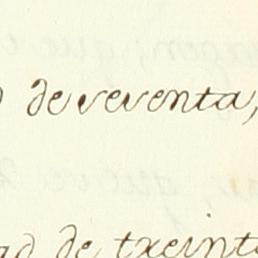 de reventa,
de treinta